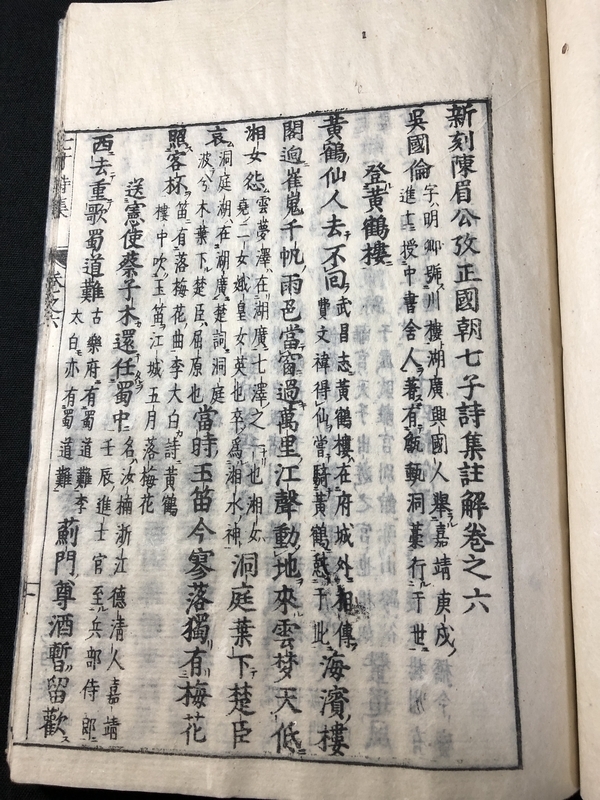 新刻陳眉公攷正國朝七子詩集註解卷之六
吳國倫 字明卿號川樓湖廣興國人舉嘉靖庚戌進士授中書舍人著有甔甀洞藁行于世
登黃鶴樓
黃鶴仙人去不回 武昌志黃鶴樓在府城外相傳費文禕得仙嘗騎黃鶴憇于此 海濱樓
閣逈崔嵬千帆雨色當窗過萬里江聲動地來雲梦天低
湘女怨 雲夢澤在湖廣七澤之一也湘女堯二女娥皇女英也卒為湘水神 洞庭葉下楚臣
哀 洞庭湖在湖廣楚詞洞庭波兮木葉下楚臣屈原也 當時玉笛今寥落獨有梅花
照客杯 笛有落梅花曲李太白詩黃鶴樓中吹玉笛江城五月落梅花
送憲使蔡子木還任蜀中 名汝楠浙江德清人嘉靖壬辰進士官至兵部侍郎
西去重歌蜀道難 古樂府有蜀道難李太白亦有蜀道難 薊門尊酒暫留歡
七子詩集 卷之六 一